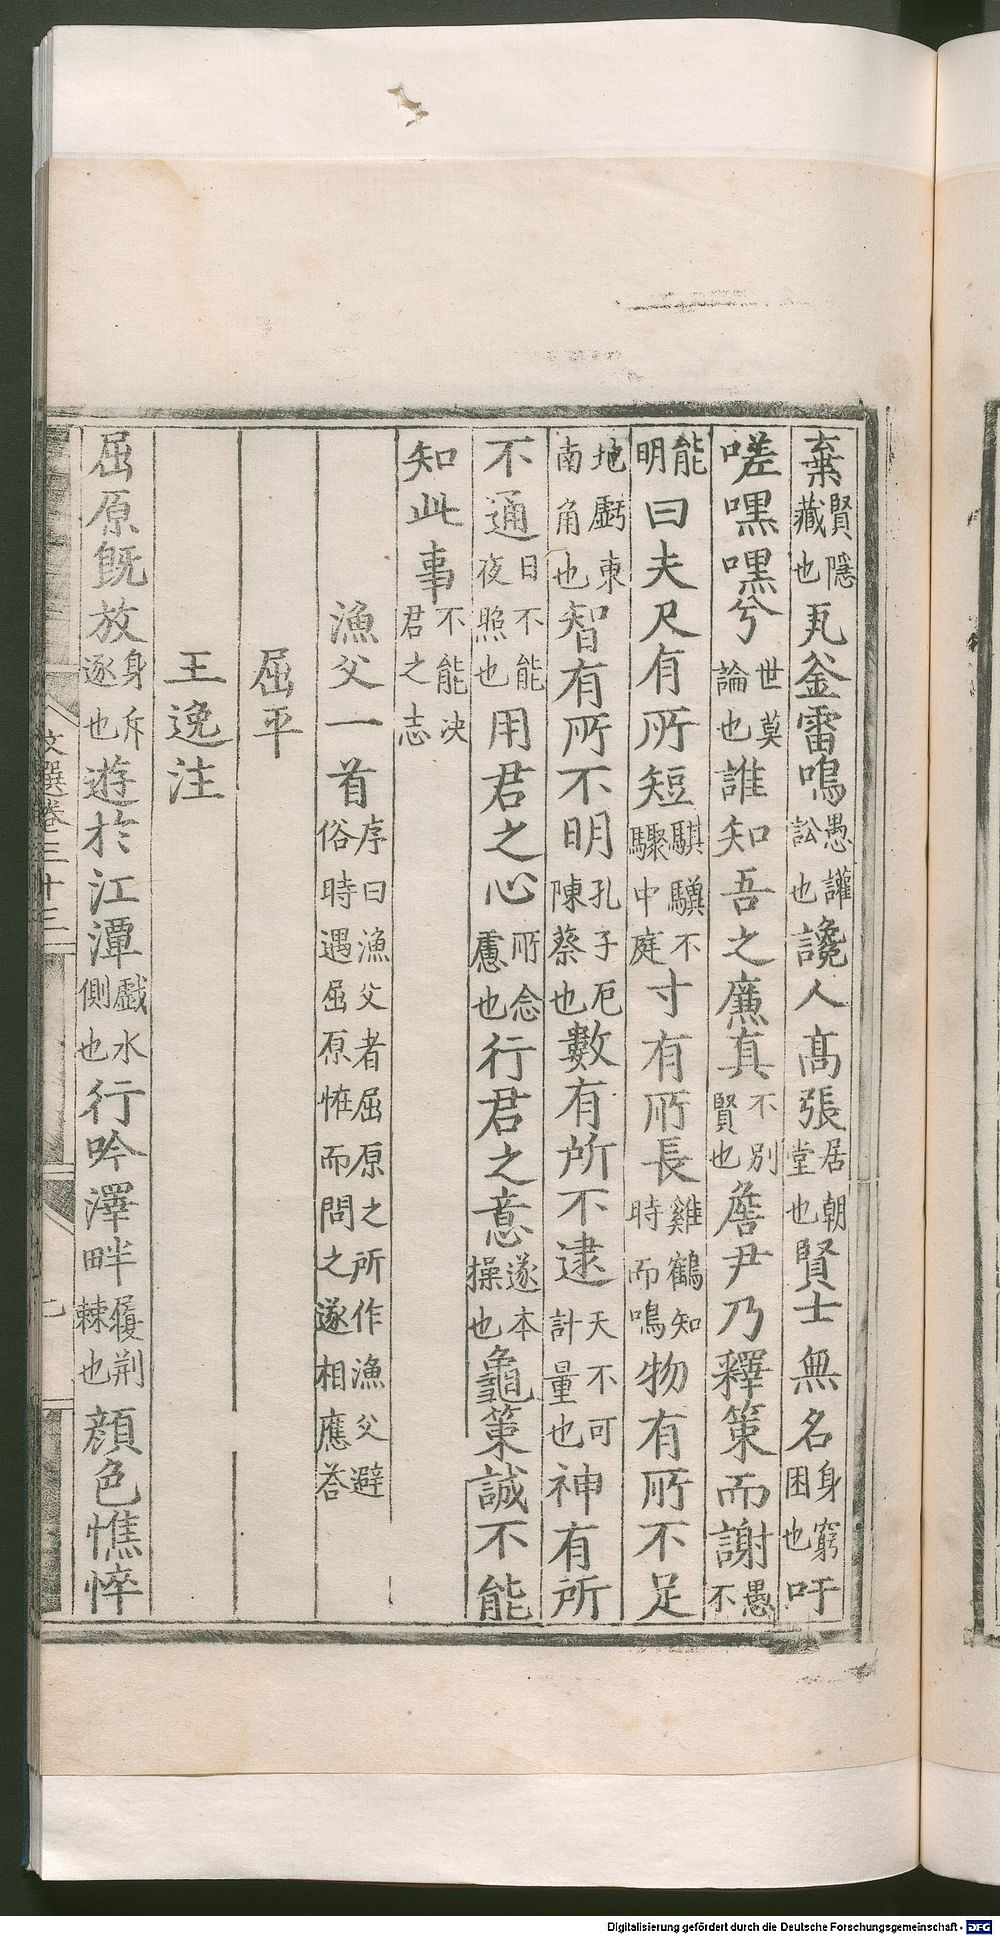 棄賢隱藏也瓦釜雷鳴愚讙訟也讒人髙張居朝堂也賢士無名身窮困也吁
嗟嘿嘿兮世莫論也誰知吾之廉真不別賢也詹尹乃釋策而謝愚不
能明曰夫尺有所短騏驥不驟中庭寸有所長雞鶴知時而鳴物有所不足
地虧東南角也智有所不明孔子厄陳蔡也數有所不逮天不可計量也神有所
不通日不能夜照也用君之心所念慮也行君之意遂本操也龜策誠不能
知此事不能决君之志
漁父一首序曰漁父者屈原之所作漁父避俗時遇屈原恠而問之遂相應荅
屈平
王逸注
屈原既放身斥逐也遊於江潭戲水側也行吟澤畔履荆棘也顔色憔悴
文選卷三十三
Digitalisierung gefördert durch die Deutsche Forschungsgemeinschaft - DFG